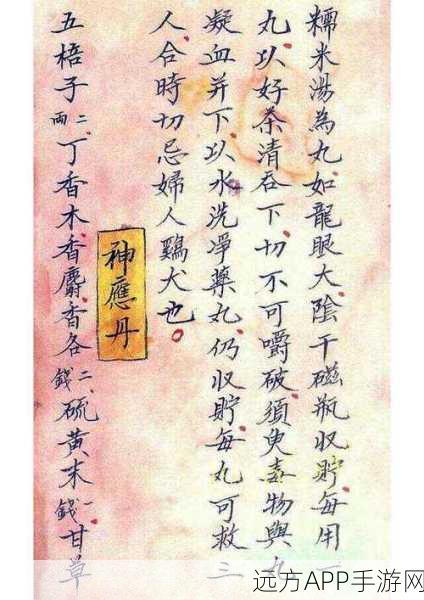 糯米湯為丸如龍眼大陰干磁瓶收貯每用一
丸以好茶清吞下切不可嚼破須臾毒物與丸
凝血并下以水洗凈藥丸仍收貯每丸可救三
人合時切忌婦人鷄犬也。
神應丹
五棓子二兩丁香木香麝香各二錢硫黃末一錢甘草
远方APP手游网